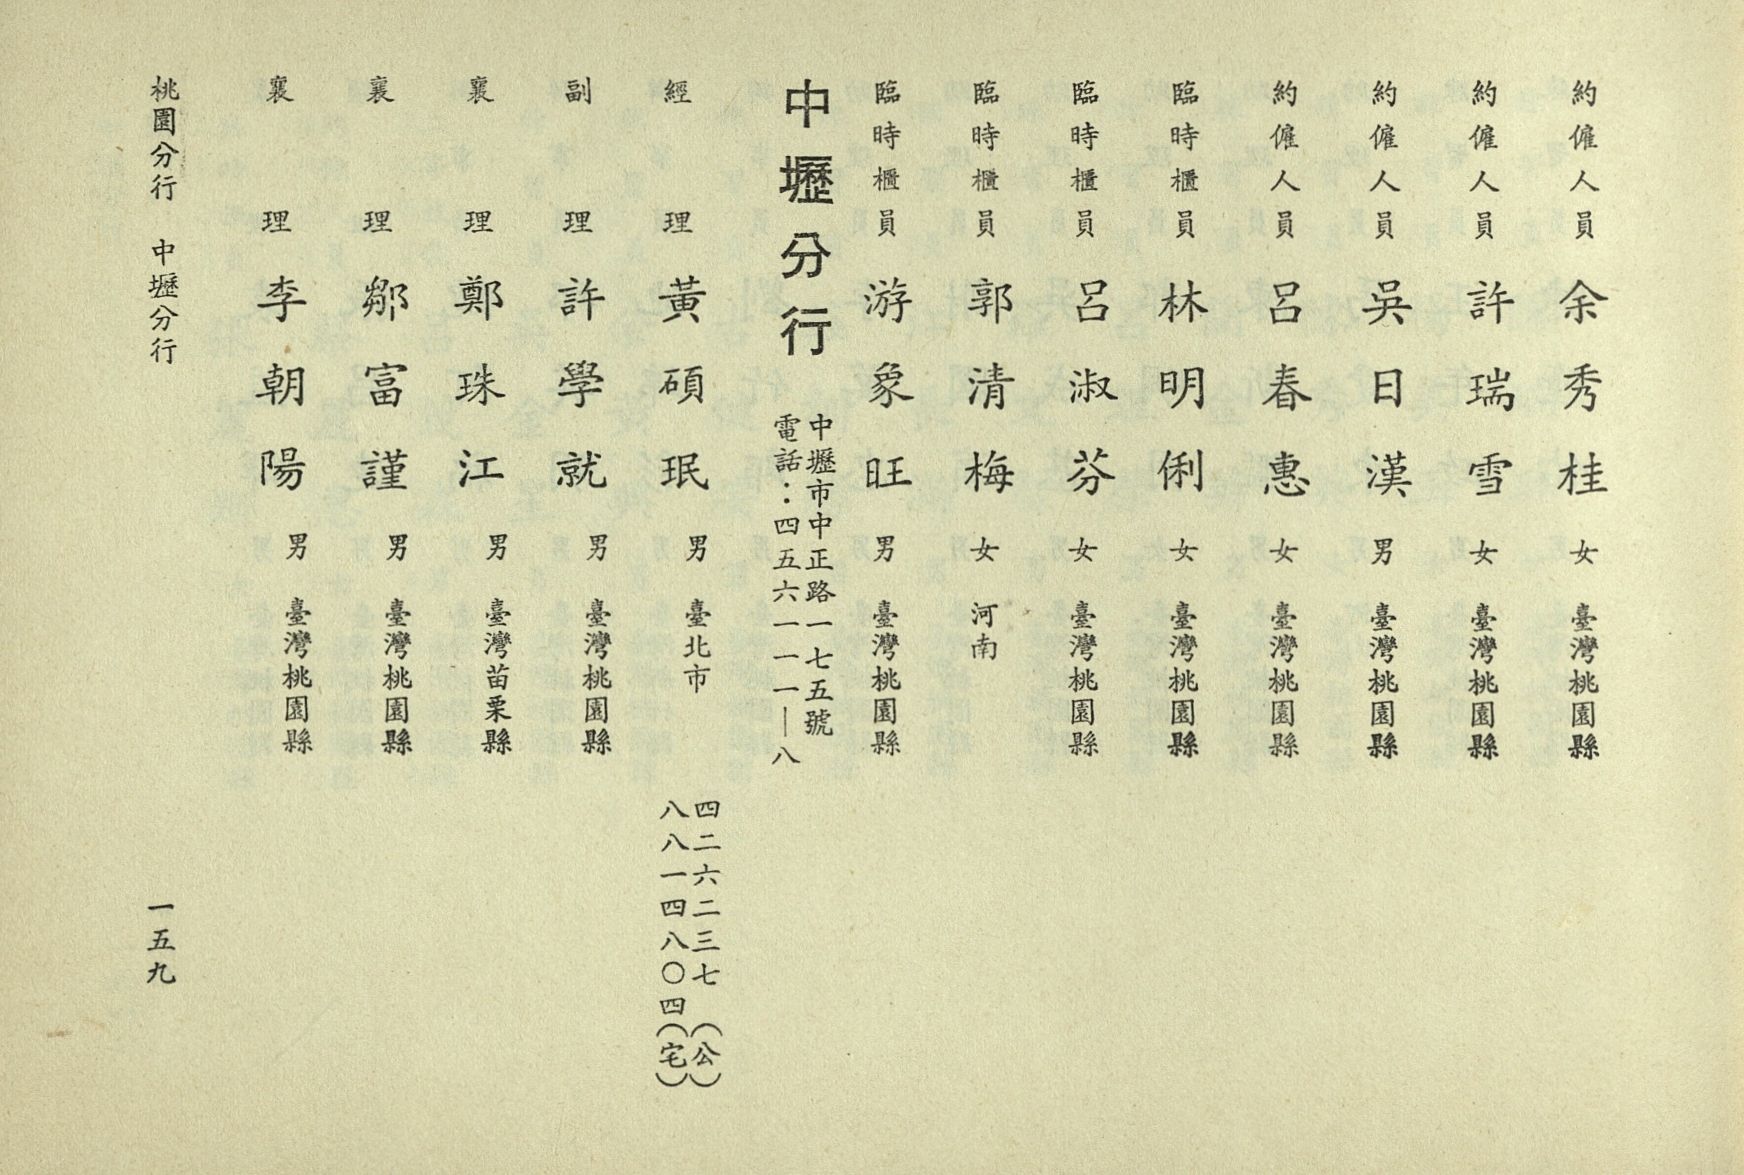 約僱人員 余秀桂 女 臺灣桃園縣
約僱人員 許瑞雪 女 臺灣桃園縣
約僱人員 吳日漢 男 臺灣桃園縣
約僱人員 呂春惠 女 臺灣桃園縣
臨時櫃員 林明俐 女 臺灣桃園縣
臨時櫃員 呂淑芬 女 臺灣桃園縣
臨時櫃員 郭清梅 女 河南
臨時櫃員 游象旺 男 臺灣桃園縣
中壢分行
中壢市中正路一七五號
電話：四五六一一一一｜八
經理 黃碩珉 男 臺北市
四二六二三七（公）
八八一四八〇四（宅）
副理 許學就 男 臺灣桃園縣
襄理 鄭珠江 男 臺灣苗栗縣
襄理 鄒富謹 男 臺灣桃園縣
襄理 李朝陽 男 臺灣桃園縣
桃園分行 中壢分行
一五九